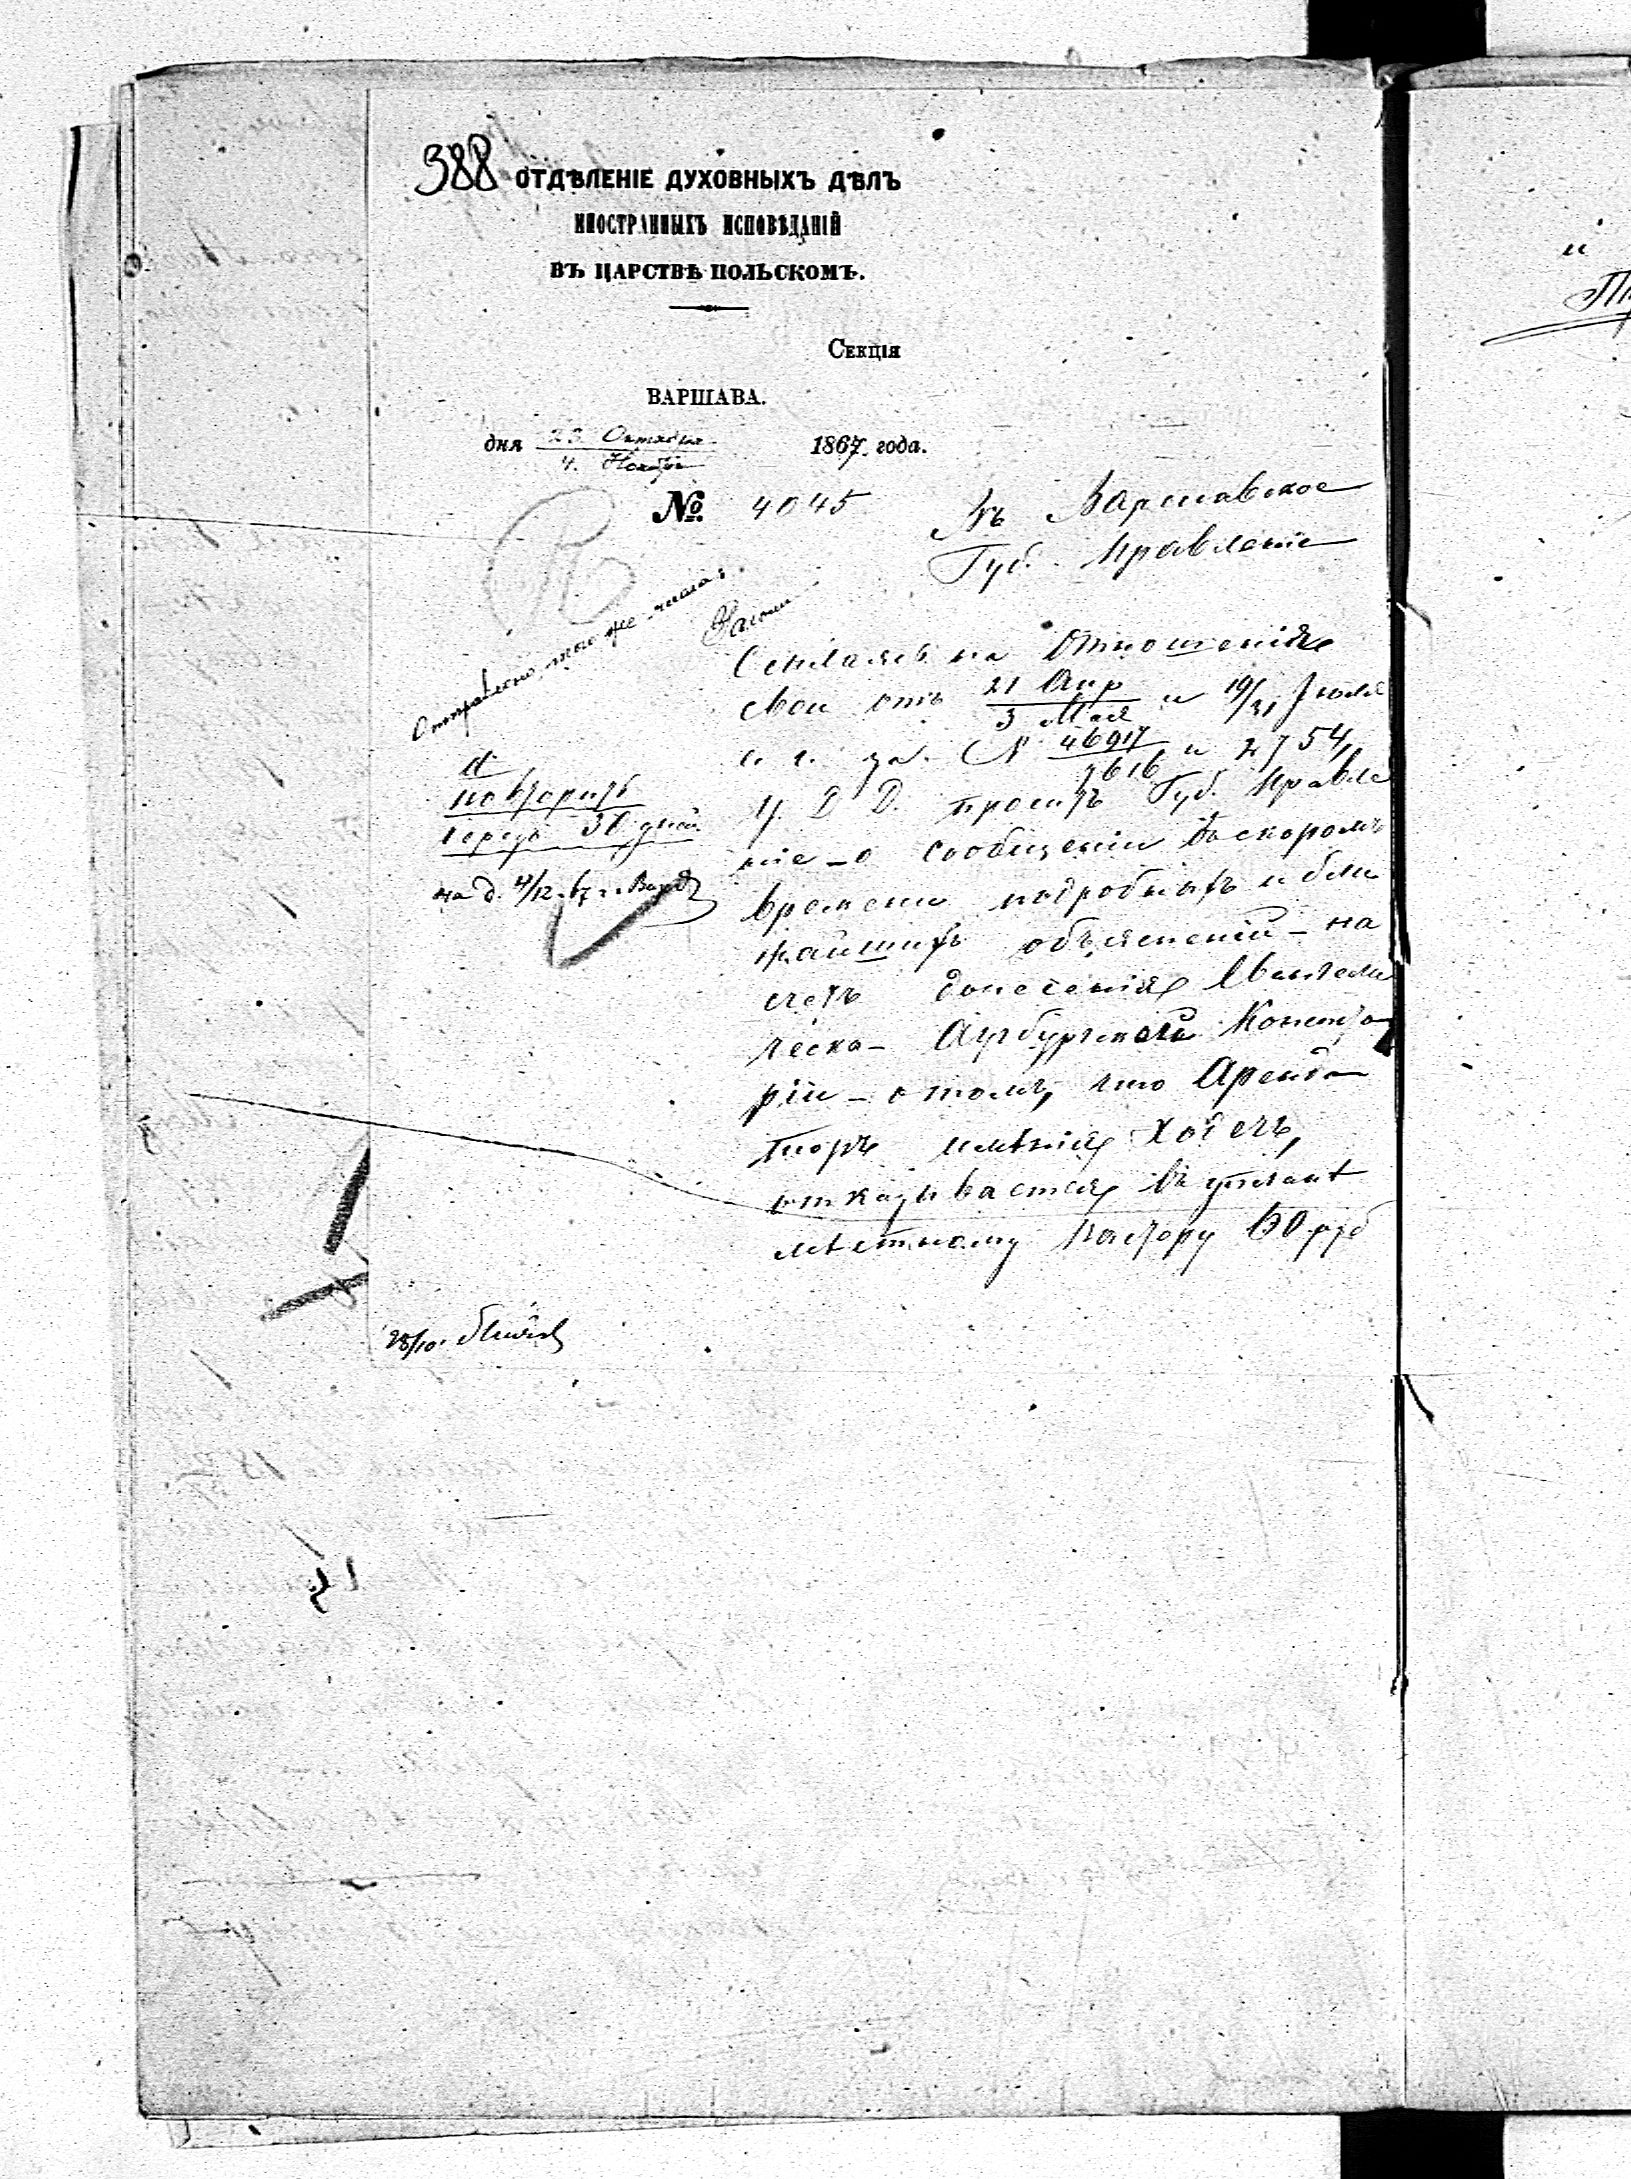 388
ОТДѢЛЕНІЕ ДУХОВНЫХЪ ДѢЛЪ
ИНОСТРАННЫХЪ ИСПОВѢДАНІЙ
ВЪ ЦАРСТВѢ ПОЛЬСКОМЪ.
Секція
ВАРШАВА.
дня 23 Октября 1867 года.
4 Ноября
№ 4045
Въ Варшавское
Губ. Правленіе
Отправлено того же числа
Ссылаясь на Отношенія
свои отъ 21 Апр / 3 Мая и 19/31 Іюля
с. г. за № 46917 / 3616 и 2754,
Ц. Д. Д. проситъ Губ. Правле
ніе о сообщеніи въ скоромъ
времени подробныхъ и бли
жайшихъ объясненій на
счетъ донесенія Евангели
ческо-Аугбургской Консисто
ріи о томъ, что Аренда
торъ имѣнія Ходечъ,
отказывается въ уплатѣ
мѣстному Пастору 150 руб
повторить
чрезъ 30 дней
на д. 4/12 67 г.
28/10
и